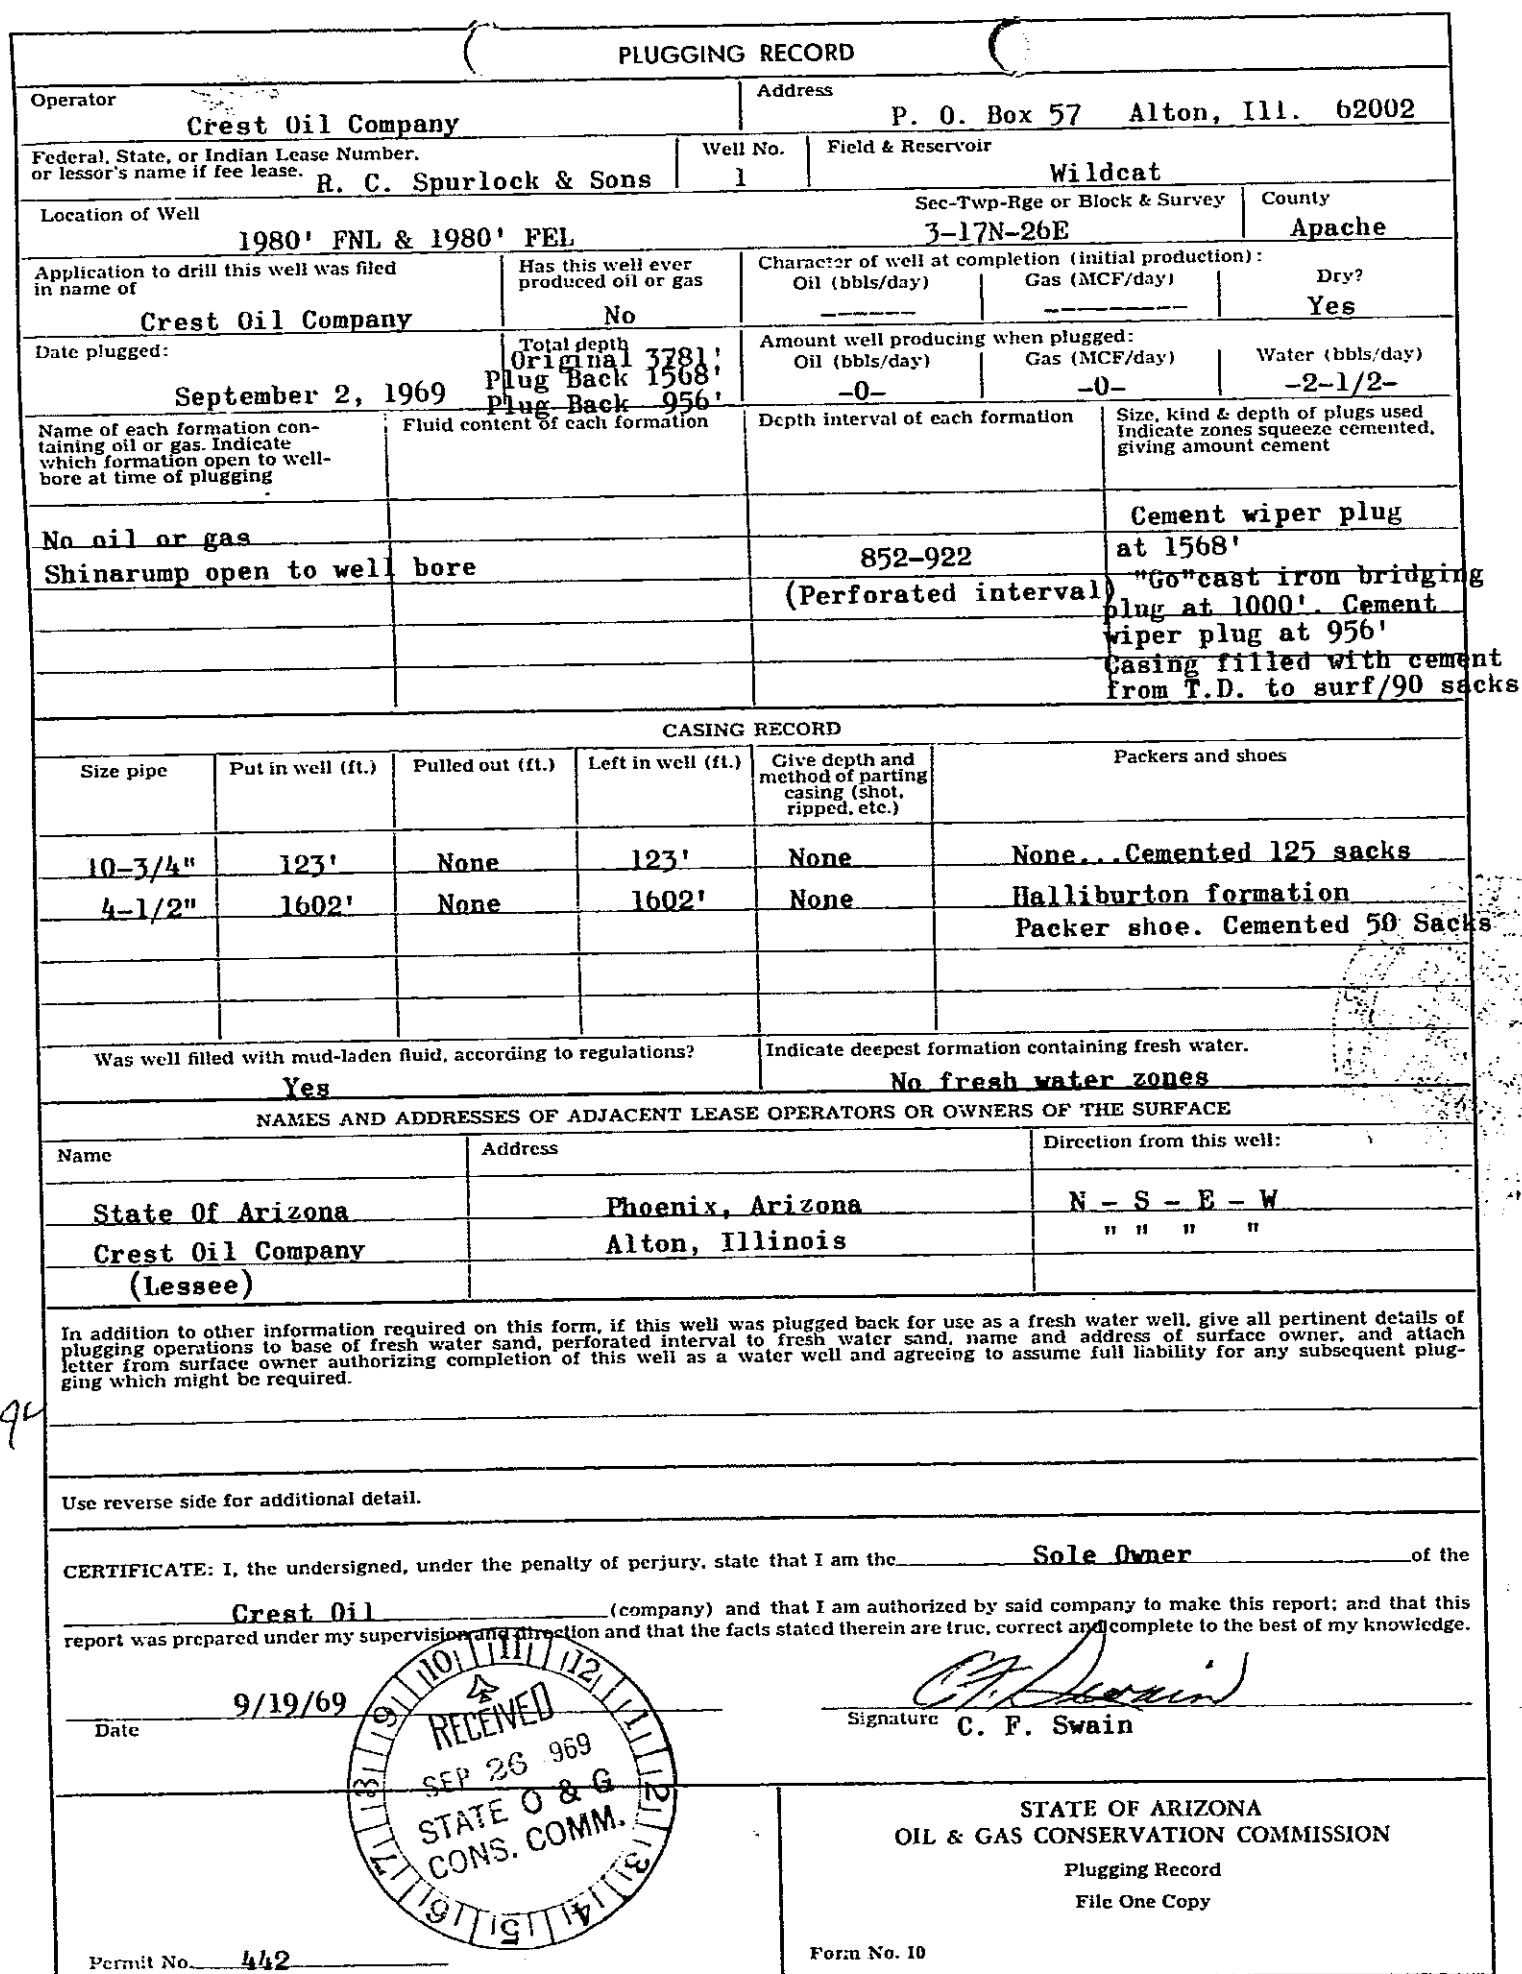 PLUGGING RECORD
Operator
Crest Oil Company
Address
P. O. Box 57 Alton, Ill. 62002
Federal, State, or Indian Lease Number,
or lessor's name if fee lease. R. C. Spurlock & Sons
Well No.
1
Field & Reservoir
Wildcat
Location of Well
1980' FNL & 1980' FEL
Sec-Twp-Rge or Block & Survey
3-17N-26E
County
Apache
Application to drill this well was filed
in name of
Crest Oil Company
Has this well ever
produced oil or gas
No
Character of well at completion (initial production):
Oil (bbls/day)
------
Gas (MCF/day)
---------
Dry?
Yes
Date plugged:
September 2, 1969
Total depth
Original 3781'
Plug Back 1568'
Plug Back 956'
Amount well producing when plugged:
Oil (bbls/day)
-0-
Gas (MCF/day)
-0-
Water (bbls/day)
-2-1/2-
Name of each formation con-
taining oil or gas. Indicate
which formation open to well-
bore at time of plugging
Fluid content of each formation
Depth interval of each formation
Size, kind & depth of plugs used
Indicate zones squeeze cemented,
giving amount cement
No oil or gas
Shinarump open to well bore
852-922
(Perforated interval)
Cement wiper plug
at 1568'
"Go"cast iron bridging
plug at 1000'. Cement
wiper plug at 956'
Casing filled with cement
from T.D. to surf/90 sacks
CASING RECORD
Size pipe
Put in well (ft.)
Pulled out (ft.)
Left in well (ft.)
Give depth and
method of parting
casing (shot,
ripped, etc.)
Packers and shoes
10-3/4" 123' None 123' None None...Cemented 125 sacks
4-1/2" 1602' None 1602' None Halliburton formation
Packer shoe. Cemented 50 Sacks
Was well filled with mud-laden fluid, according to regulations?
Yes
Indicate deepest formation containing fresh water.
No fresh water zones
NAMES AND ADDRESSES OF ADJACENT LEASE OPERATORS OR OWNERS OF THE SURFACE
Name
Address
Direction from this well:
State Of Arizona Phoenix, Arizona N - S - E - W
Crest Oil Company Alton, Illinois " " " "
(Lessee)
In addition to other information required on this form, if this well was plugged back for use as a fresh water well, give all pertinent details of
plugging operations to base of fresh water sand, perforated interval to fresh water sand, name and address of surface owner, and attach
letter from surface owner authorizing completion of this well as a water well and agreeing to assume full liability for any subsequent plug-
ging which might be required.
Use reverse side for additional detail.
CERTIFICATE: I, the undersigned, under the penalty of perjury, state that I am the Sole Owner of the
Crest Oil (company) and that I am authorized by said company to make this report; and that this
report was prepared under my supervision and direction and that the facts stated therein are true, correct and complete to the best of my knowledge.
9/19/69
Date
C. F. Swain
Signature C. F. Swain
10 11 12 1 2 3 4 5 6 7 8 9
RECEIVED
SEP 26 969
STATE O & G
CONS. COMM.
STATE OF ARIZONA
OIL & GAS CONSERVATION COMMISSION
Plugging Record
File One Copy
Permit No. 442
Form No. 10